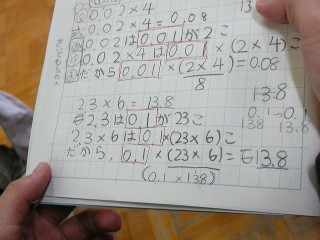 0.02×4
0.02×4=0.08
0.02は0.01が2こ
0.02×4は0.01×(2×4)こ
だから0.01×(2×4)=0.08
8
13.8
2.3×6=13.8
2.3は0.1が23こ
0.1→0.1
138 13.8
2.3×6は0.1×(23×6)こ
だから,0.1×(23×6)=13.8
(0.1×138)